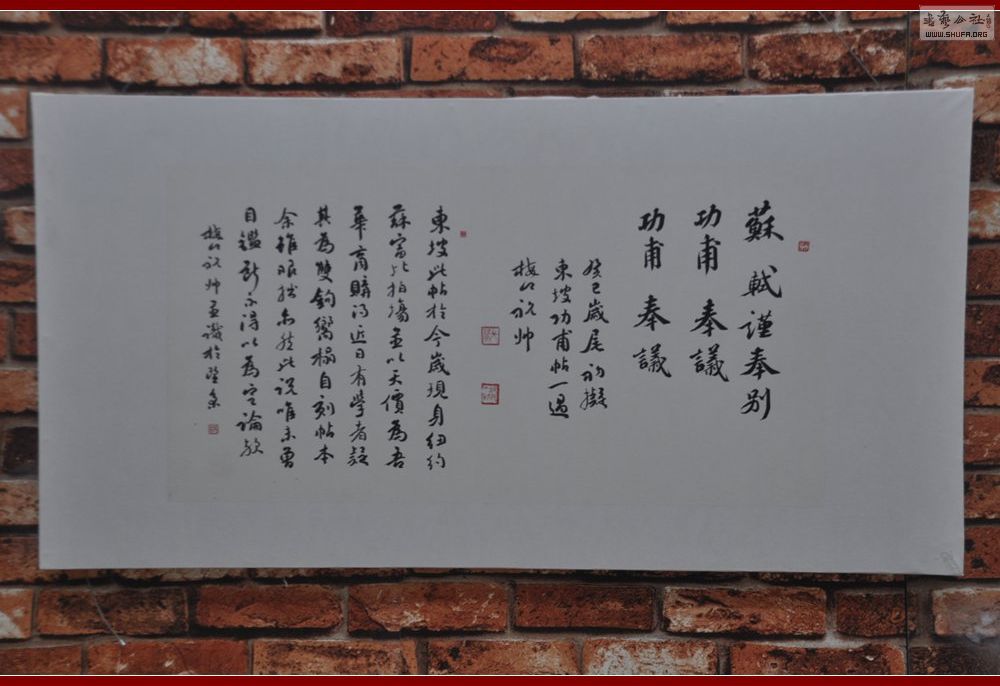 蘇軾謹奉别
功甫奉議
功甫奉議
癸巳歲尾初擬
東坡功甫帖一過
梅山祝帅
東坡此帖於今歲現身纽约
蘇富比拍場並以天價為吾
華商購得近日有學者疑
其為雙鉤嚮榻自刻帖本
余雖眼拙亦然此説唯未曾
目鑑斷不得以為定論
梅山祝帅並識於
書藝公社
WWW.SHUFA.ORG